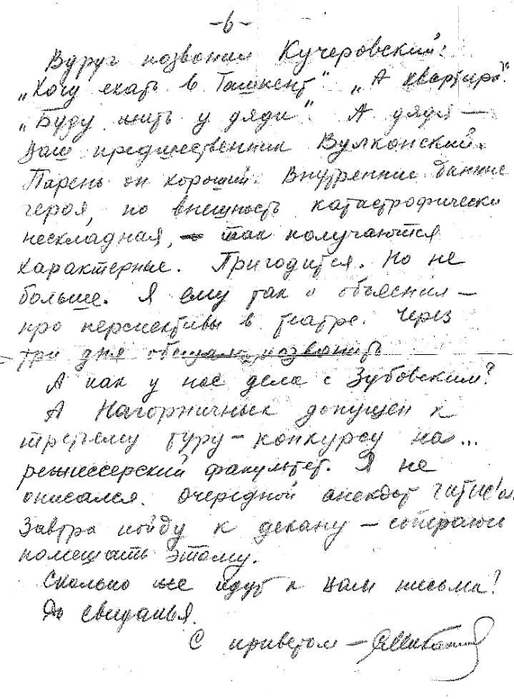 -6-
Вдруг позвонил Кучеровский:
„Хочу ехать в Ташкент". „А квартира?"
„Буду жить у дяди". А дядя —
Ваш предшественник Вулконский.
Парень он хороший. Внутренние данные
героя, но внешность катастрофически
нескладная, — так получаются
характерные. Пригодится. Но не
больше. Я ему так и объяснил —
про перспективы в театре. Через
три дня обещал позвонить
А как у нас дела с Зубовским?
А Нагорничных допущен к
третьему туру-конкурсу на...
режиссерский факультет. Я не
описался. Очередной анекдот ГИТИС'а.
Завтра пойду к декану — собираюсь
помешать этому.
Сколько же идут к Вам письма?
До свиданья.
С приветом —